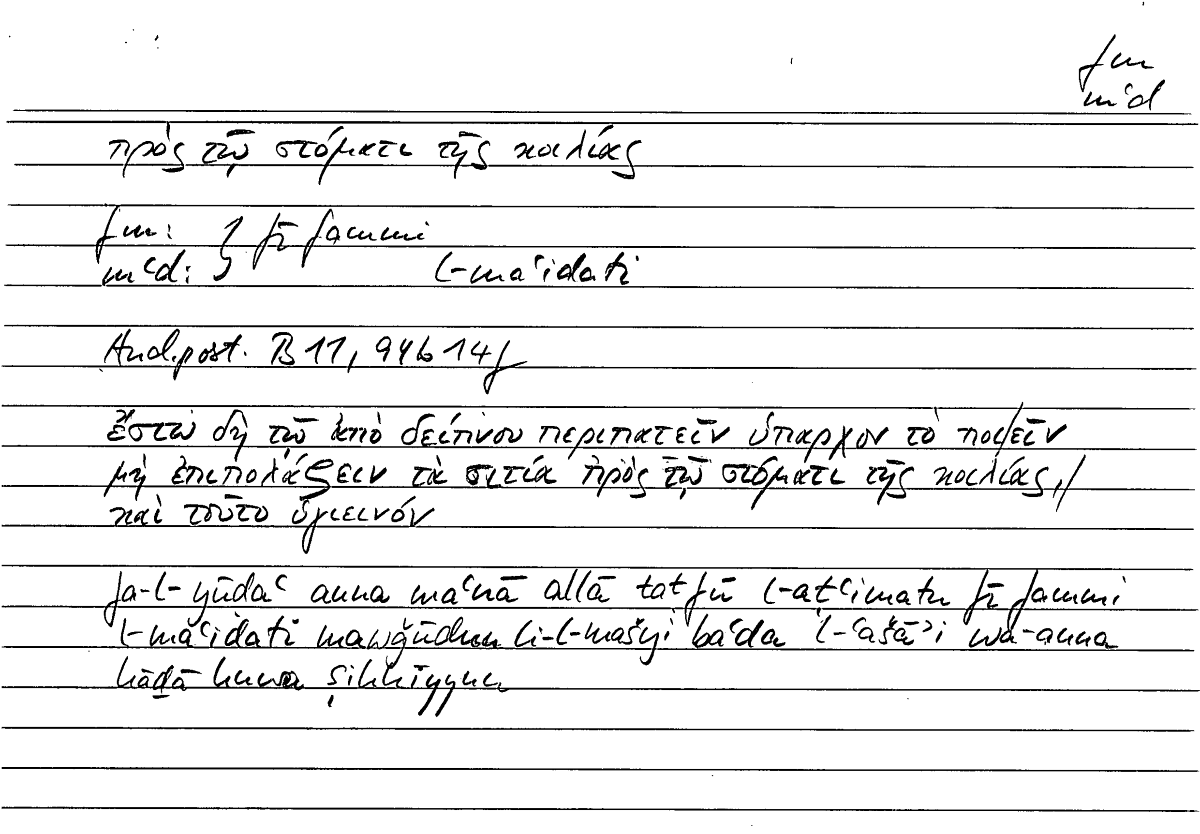 fm
mʿd
πρὸς τῷ στόματι τῆς κοιλίας
fm: } fī fammi
mʿd: l-maʿidati
Anal.post. B 11, 94b14f
ἔστω δὴ τῷ ἀπὸ δείπνου περιπατεῖν ὑπάρχον τὸ ποι/εῖν
μὴ ἐπιπολάζειν τὰ σιτία πρὸς τῷ στόματι τῆς κοιλίας,/
καὶ τοῦτο ὑγιεινόν
fa-l-yūdaʿ anna maʿnā allā taṭfū l-aṭʿimatu fī fammi
l-maʿidati mawǧūdun li-l-mašyi baʿda l-ʿašāʾi wa-anna
hāḏā huwa ṣiḥḥīyyun